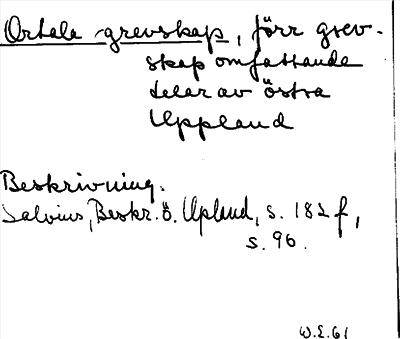 Ortala grevskap, förr grev-
skap omfattande
delar av östra
Uppland
Beskrivning.
Salvius, Beskr. ö. Upland, s. 182 f,
s. 96.
W.E.61